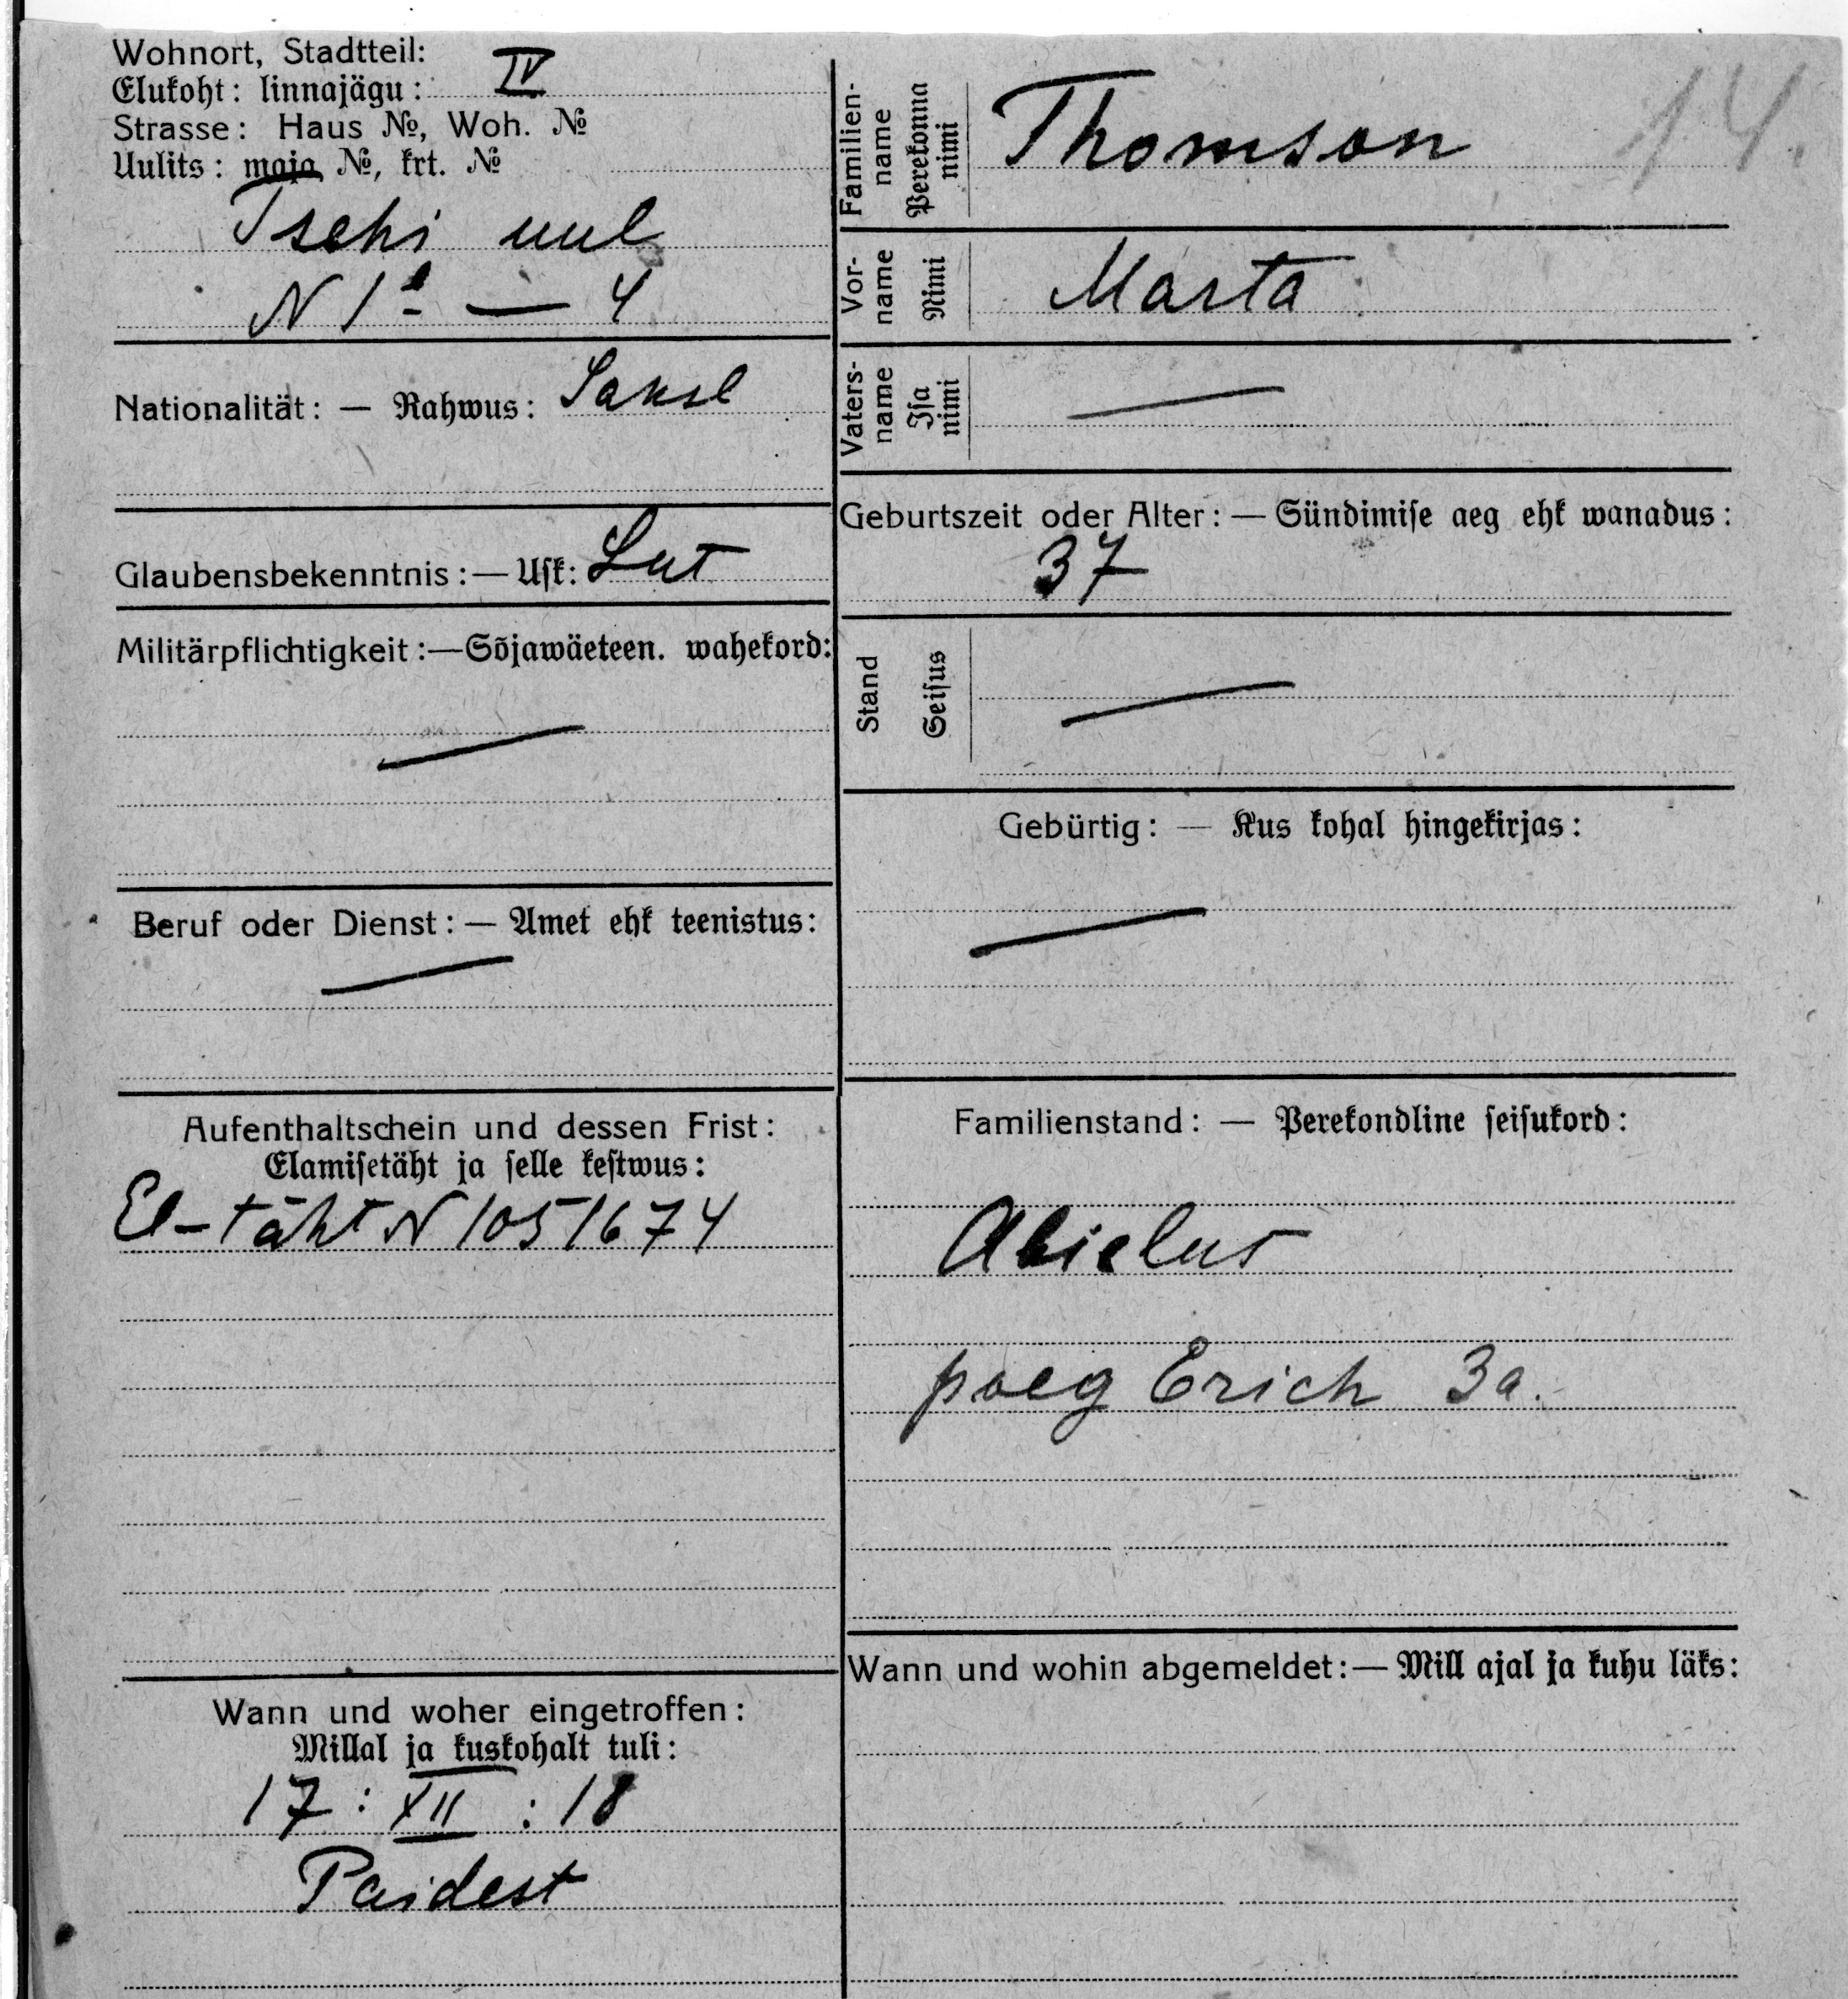 Wohnort, Stadtteil:
Elukoht: linnajägu: IV
Strasse: Haus №, Woh. №
Uulits: maja №, krt. №
uul
N 1a — 4
Nationalität: — Rahwus: Saksl
Glaubensbekenntnis: — Usk: Lut
Militärpflichtigkeit:—Sõjawäeteen. wahekord:
—
Beruf oder Dienst: — Amet ehk teenistus:
—
Aufenthaltschein und dessen Frist:
Elamisetäht ja selle kestwus:
El-täht N 1051674
Wann und woher eingetroffen:
Millal ja kuskohalt tuli:
17: XII :18
Paidest
14.
Familien-name Perekonna nimi Thomson
Vor-name Nimi Marta
Vaters-name Isa nimi —
Geburtszeit oder Alter: — Sündimise aeg ehk wanadus:
37
Stand Seisus —
Gebürtig: — Kus kohal hingekirjas:
—
Familienstand: — Perekondline seisukord:
Abielus
poeg Erich 3a.
Wann und wohin abgemeldet:— Mill ajal ja kuhu läks: